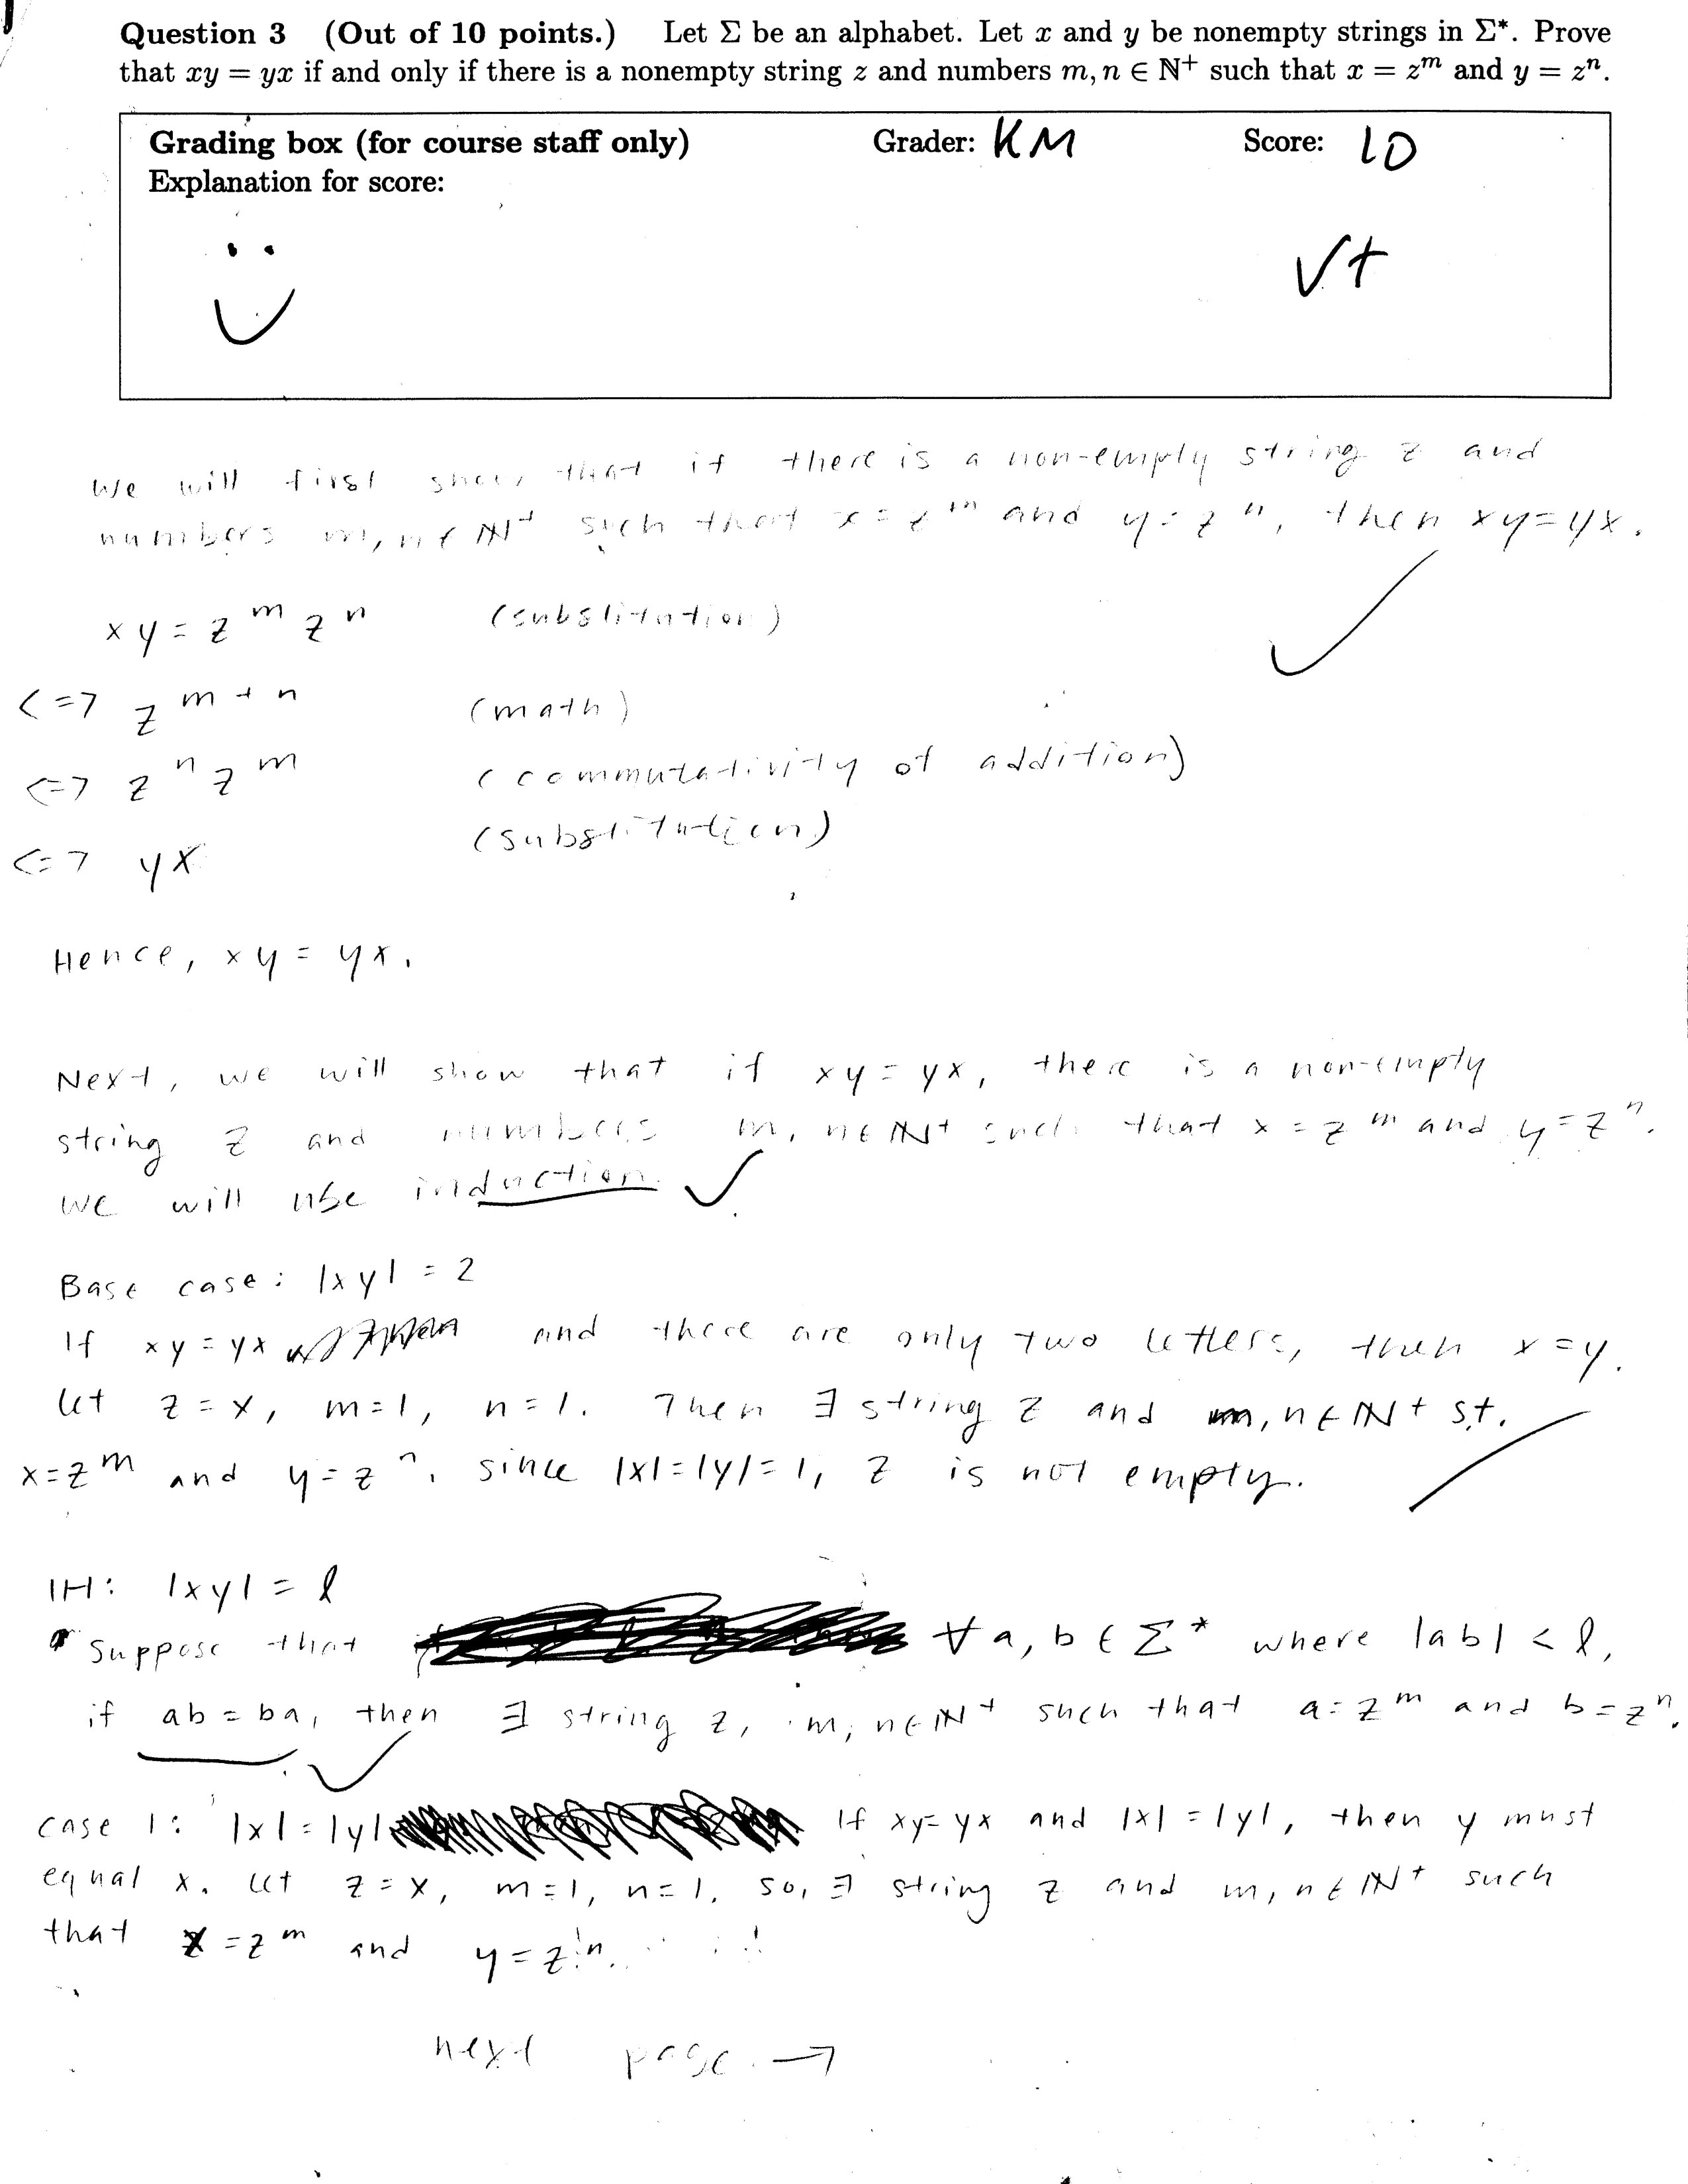 Question 3 (Out of 10 points.) Let Σ be an alphabet. Let x and y be nonempty strings in Σ*. Prove
that xy = yx if and only if there is a nonempty string z and numbers m, n ∈ N⁺ such that x = zᵐ and y = zⁿ.
Grading box (for course staff only) Grader: KM Score: 10
Explanation for score:
✓+
We will first show that if there is a non-empty string z and
numbers m, n ∈ N⁺ such that x = zᵐ and y = zⁿ, then xy = yx.
xy = zᵐ zⁿ (substitution)
<=> zᵐ⁺ⁿ (math)
<=> zⁿ zᵐ (commutativity of addition)
<=> yx (substitution)
Hence, xy = yx.
Next, we will show that if xy = yx, there is a non-empty
string z and numbers m, n ∈ N⁺ such that x = zᵐ and y = zⁿ.
We will use induction. ✓
Base case: |xy| = 2
If xy = yx and there are only two letters, then x = y.
Let z = x, m = 1, n = 1. Then ∃ string z and m, n ∈ N⁺ s.t.
x = zᵐ and y = zⁿ. since |x| = |y| = 1, z is not empty.
IH: |xy| = l
Suppose that ∀ a, b ∈ Σ* where |ab| < l,
if ab = ba, then ∃ string z, m, n ∈ N⁺ such that a = zᵐ and b = zⁿ.
case 1: |x| = |y| If xy = yx and |x| = |y|, then y must
equal x. Let z = x, m = 1, n = 1. So, ∃ string z and m, n ∈ N⁺ such
that x = zᵐ and y = zⁿ.
next page →